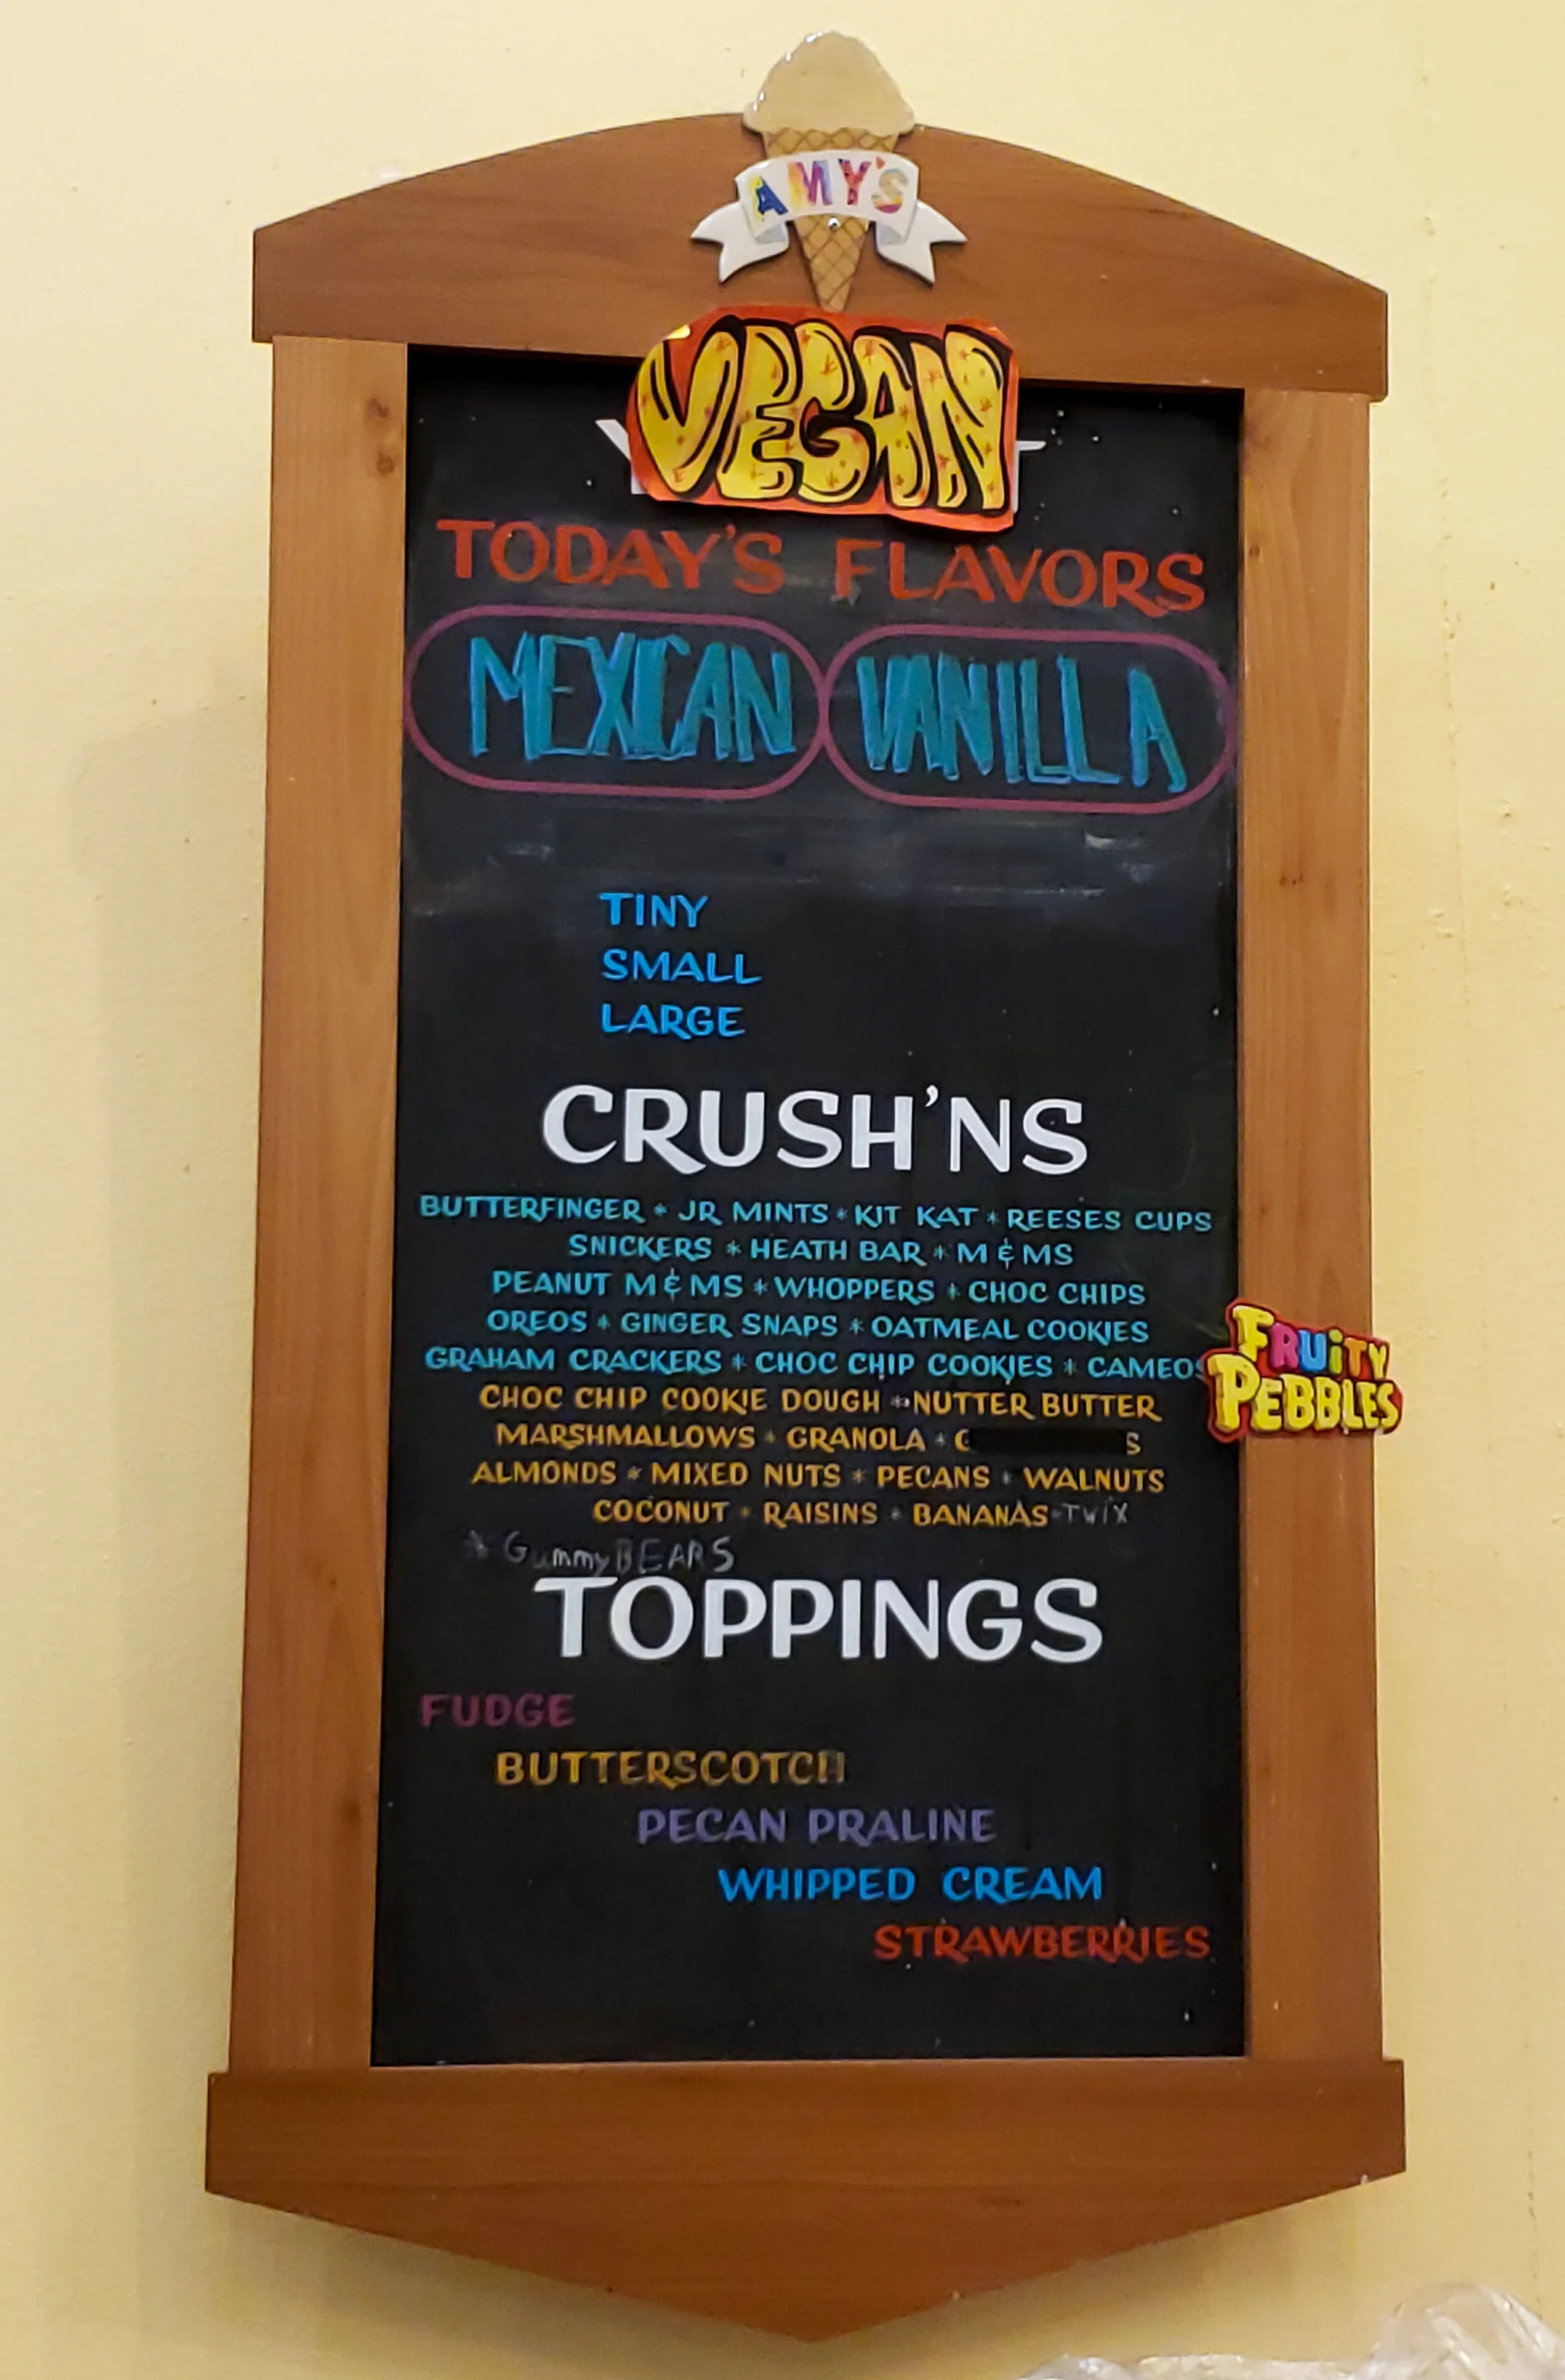 AMY'S
VEGAN
TODAY'S FLAVORS
MEXICAN VANILLA
TINY
SMALL
LARGE
CRUSH'NS
BUTTERFINGER * JR MINTS * KIT KAT * REESES CUPS
SNICKERS * HEATH BAR * M & MS
PEANUT M & MS * WHOPPERS * CHOC CHIPS
OREOS * GINGER SNAPS * OATMEAL COOKIES
GRAHAM CRACKERS * CHOC CHIP COOKIES * CAMEOS
FRUITY
PEBBLES
CHOC CHIP COOKIE DOUGH * NUTTER BUTTER
MARSHMALLOWS * GRANOLA *
ALMONDS * MIXED NUTS * PECANS * WALNUTS
COCONUT * RAISINS * BANANAS * TWIX
* GummyBEARS
TOPPINGS
FUDGE
BUTTERSCOTCH
PECAN PRALINE
WHIPPED CREAM
STRAWBERRIES